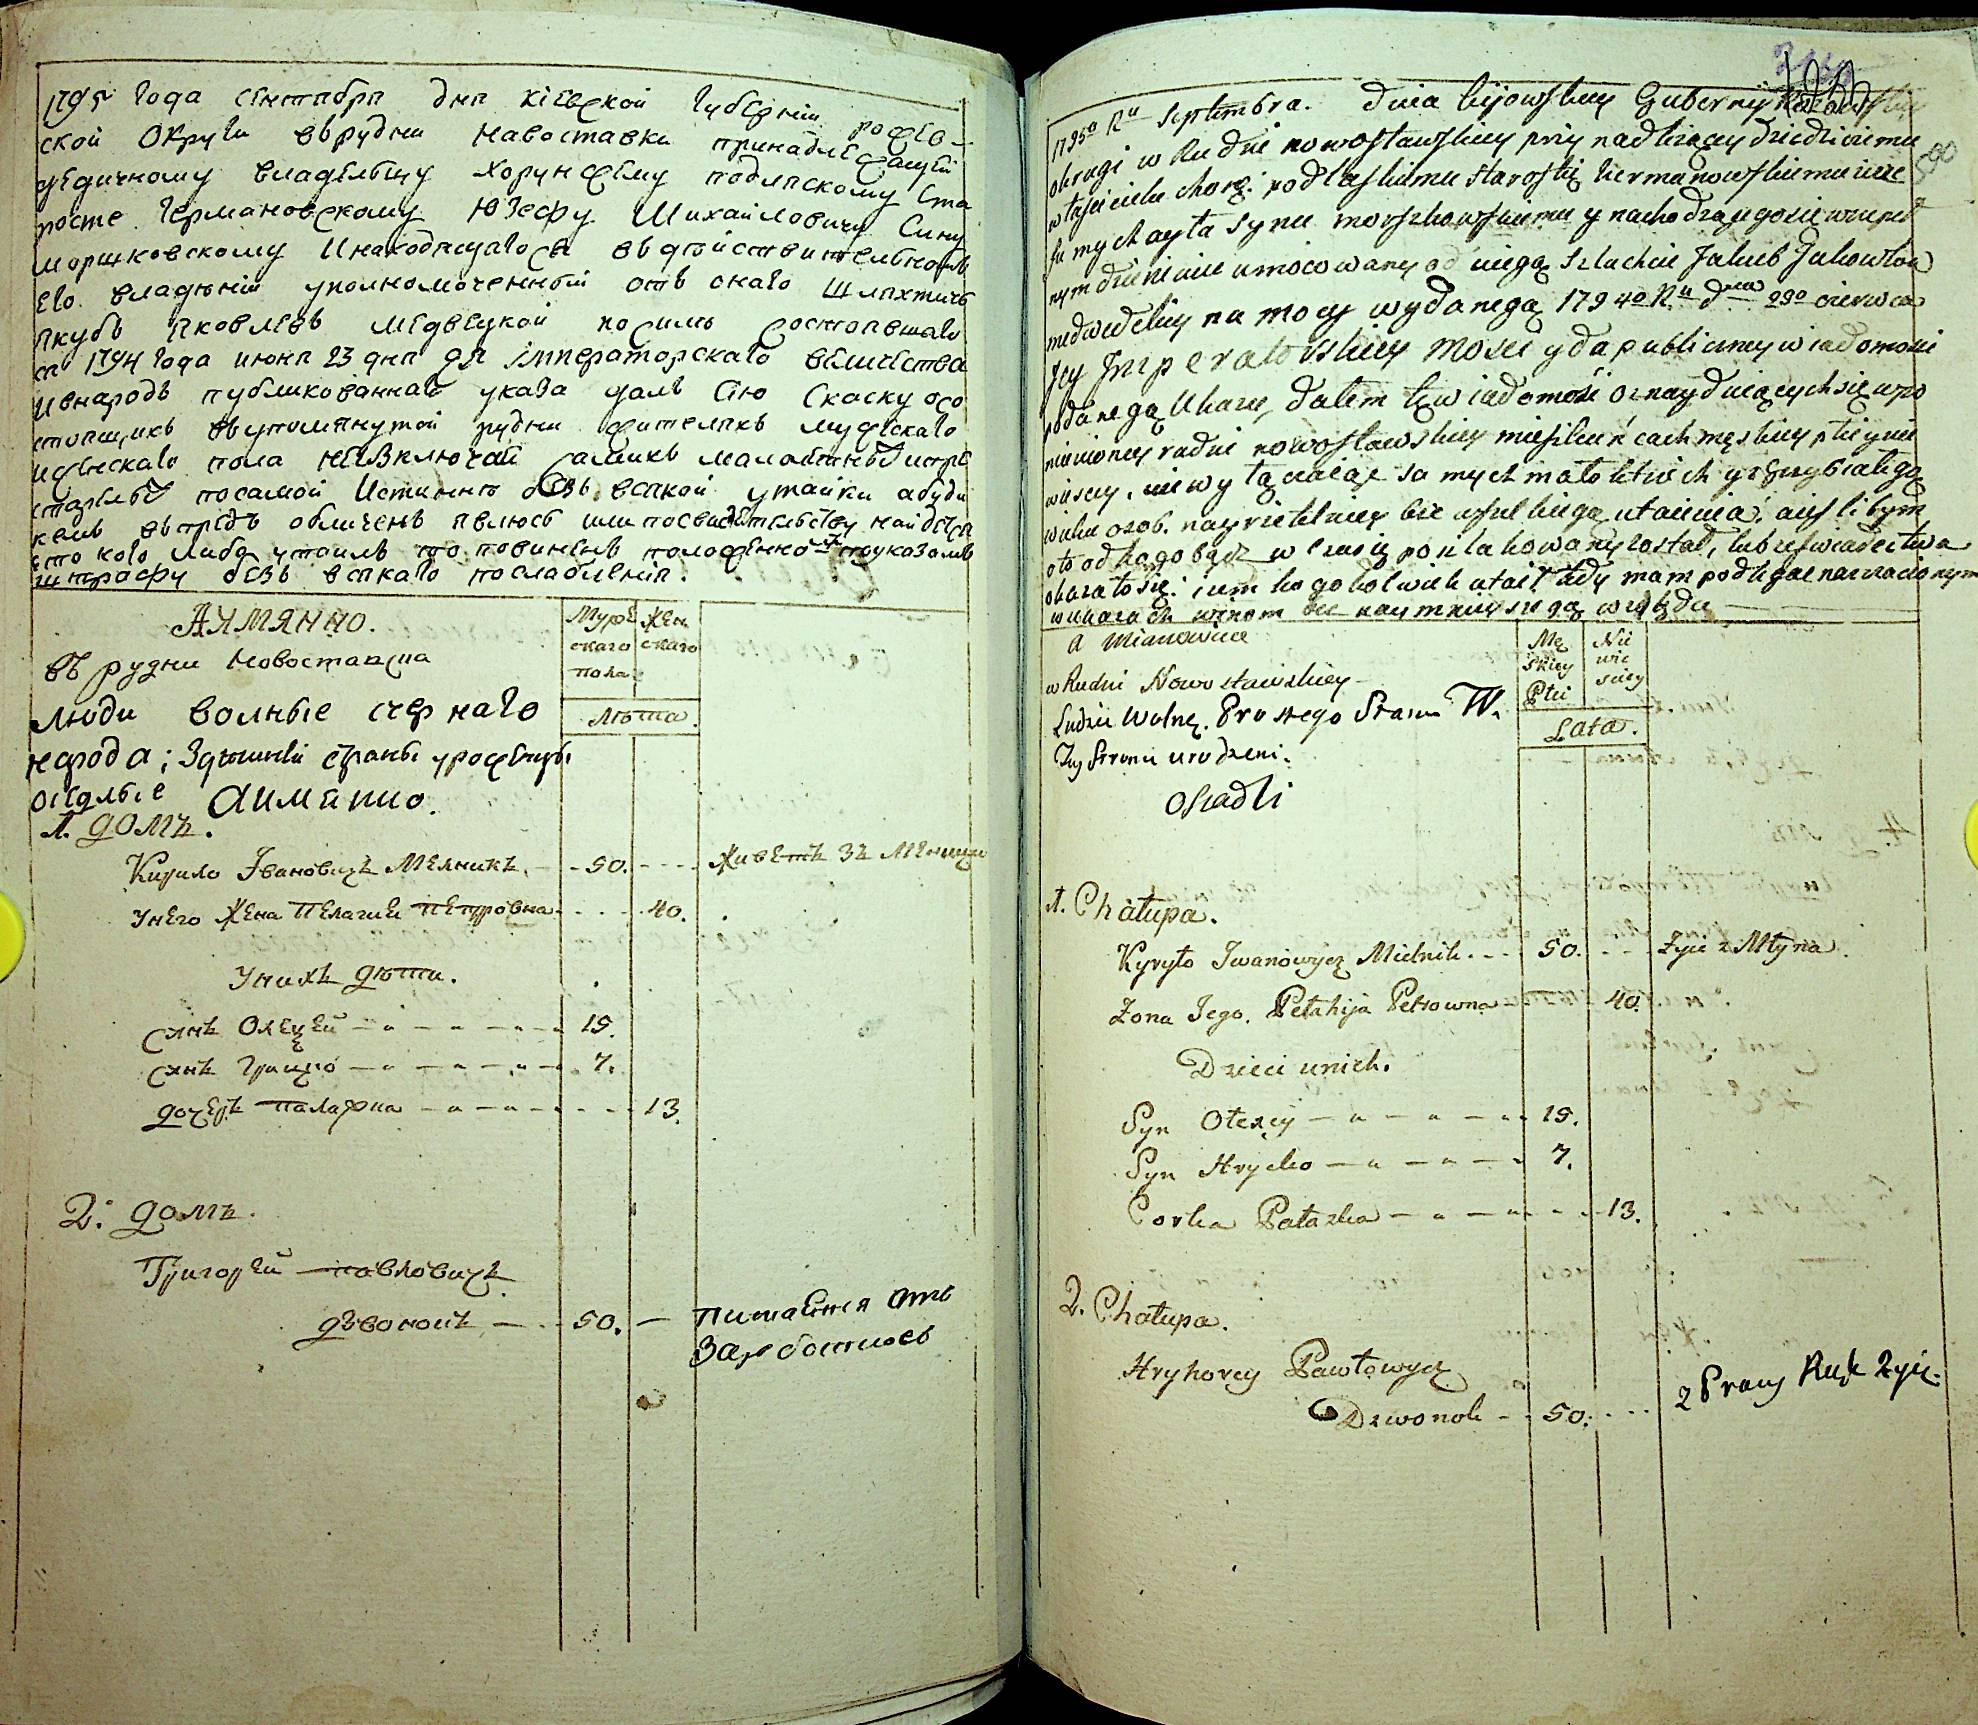 1795 года сентября дня кіевской губерніи рожев-
ской округи въ рудни Навоставки принадлежащей
дедичному владельцу хорунжему подляскому Ста
росте Германовскому Юзефу Михайловичу Сину
Моршковскому Инаходящагося въ действительномъ
его владеніи уполномоченный отъ онаго шляхтичь
якубъ яковлевъ Медвецкой по силе состоявшаго
ся 1794 года июня 23 дня ея імператорскаго величества
ивнародъ публикованнаго указа далъ сію скаску осо
стоящихъ въ упомянутой рудни жителяхъ мужескаго
иженскаго пола невключая самихъ малолетныхъ ипре
старелыхъ посамой Истинне безъ всякой утайки абуди
кемъ въпредь обличенъ явлюсь или посвидетельству найдется
что кого либо утаилъ то повиненъ положенному поуказамъ
штрафу безъ всякаго послабленія.
АИМЯННО.
Муже
скаго
пола
Жен
скаго
въ рудни Новоставца
люди волные счернаго
народа; Здешней страны урожденцы
оседлые Аимянно.
Лета.
1. домъ.
Кирило Івановичъ Мелникъ. 50. Живетъ зъ Мелницы
Унего Жена Пелагия Петровна 40.
Унихъ дети.
сынъ Олексей 15.
сынъ Грицко 7.
дочеръ палажка 13.
2. домъ.
Григорей павловичъ
дзвонокъ 50. питается отъ
Заработковъ
1795o Ru Septembra. Dnia kijowskiey Gubernij
okrugi w Rudni nowostawskiey przynadlezącey dziedzicznemu
właścicielu chorą: podlaskiemu staroście hermanowskiemu Juze
fu mychayła synu morszkowskiemu y nachodzącegosie w zupeł
nym dzierżeniu umocowany od niego Szlachcic Jakub Jakowlow
medwedckiey na mocy wydanego 1794o Ru dnia 23o czerwca
Jey Imperatorskiey Mosci y dla publiczney wiadomosci
podanego Ukazu, dałem tę wiadomość o znayduiących się wspo
mnioney rudni nowostawskiey mieszkańcach męskiey płci y nie
wiesciey, nie wyłączaiąc samych małoletnich y zgrzybiałego
wieku osob. nayrzetelniey bez wszelkiego utaienia, a jeslibym
oto od kogo bądz w czasie poszlakowany został, lub zeswiadectwa
okazało się: iżem kogokolwiek utaił tedy mam podlegać naznaczonym
w ukazach winom bez naymnieyszego względu
a Mianowicie
Mę
skiey
Płci
Nie
wie
sciey
w Rudni Nowostawskiey
Ludzie Wolne. Prostego Stanu W.
Tey Strony urodzeni.
Osiadli
Lata.
1. Chałupa.
Kyryło Iwanowycz Mielnik. 50. Żyie z Młyna.
Zona Jego. Pelahija Petrowna 40.
Dzieci unich.
Syn Olexey 15.
Syn Hrycko 7.
Corka Pałazka 13.
2. Chałupa.
Hryhorey Pawłowycz
Dzwonok 50. z Pracy Rąk Zyie.